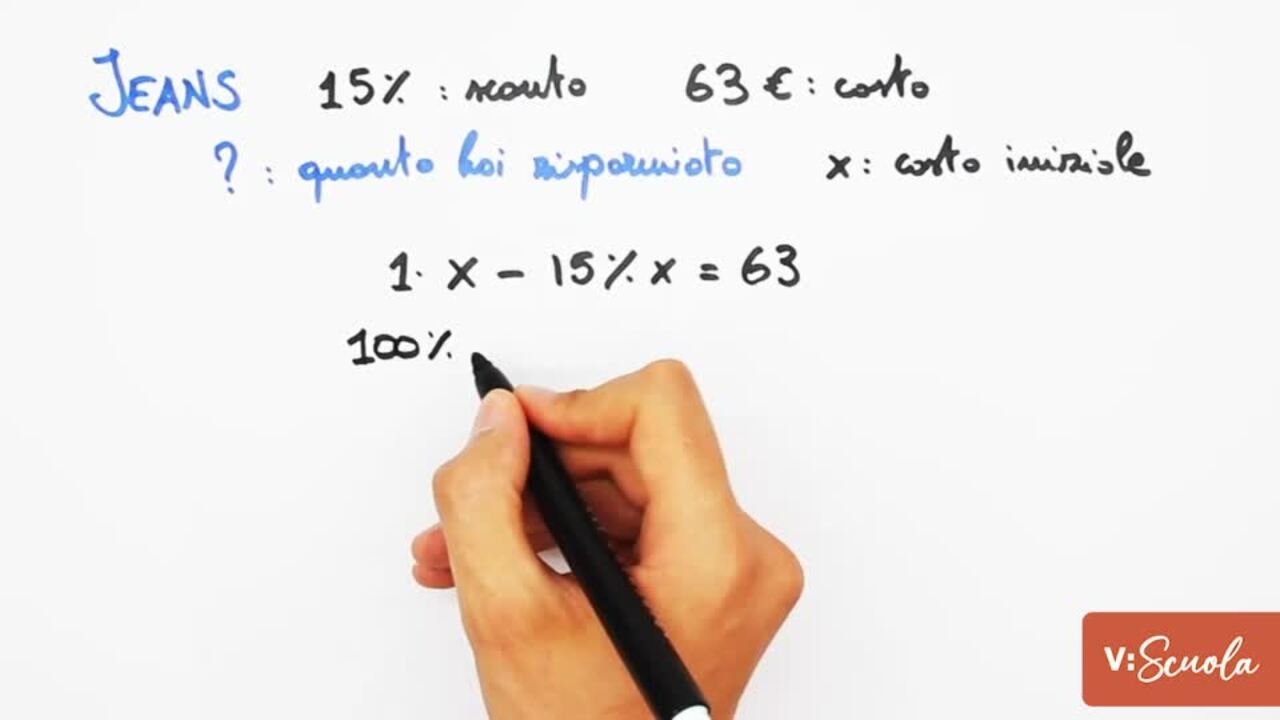 JEANS 15% : sconto 63 € : costo
? : quanto hai risparmiato x : costo iniziale
1· x - 15% x = 63
100%
V:Scuola